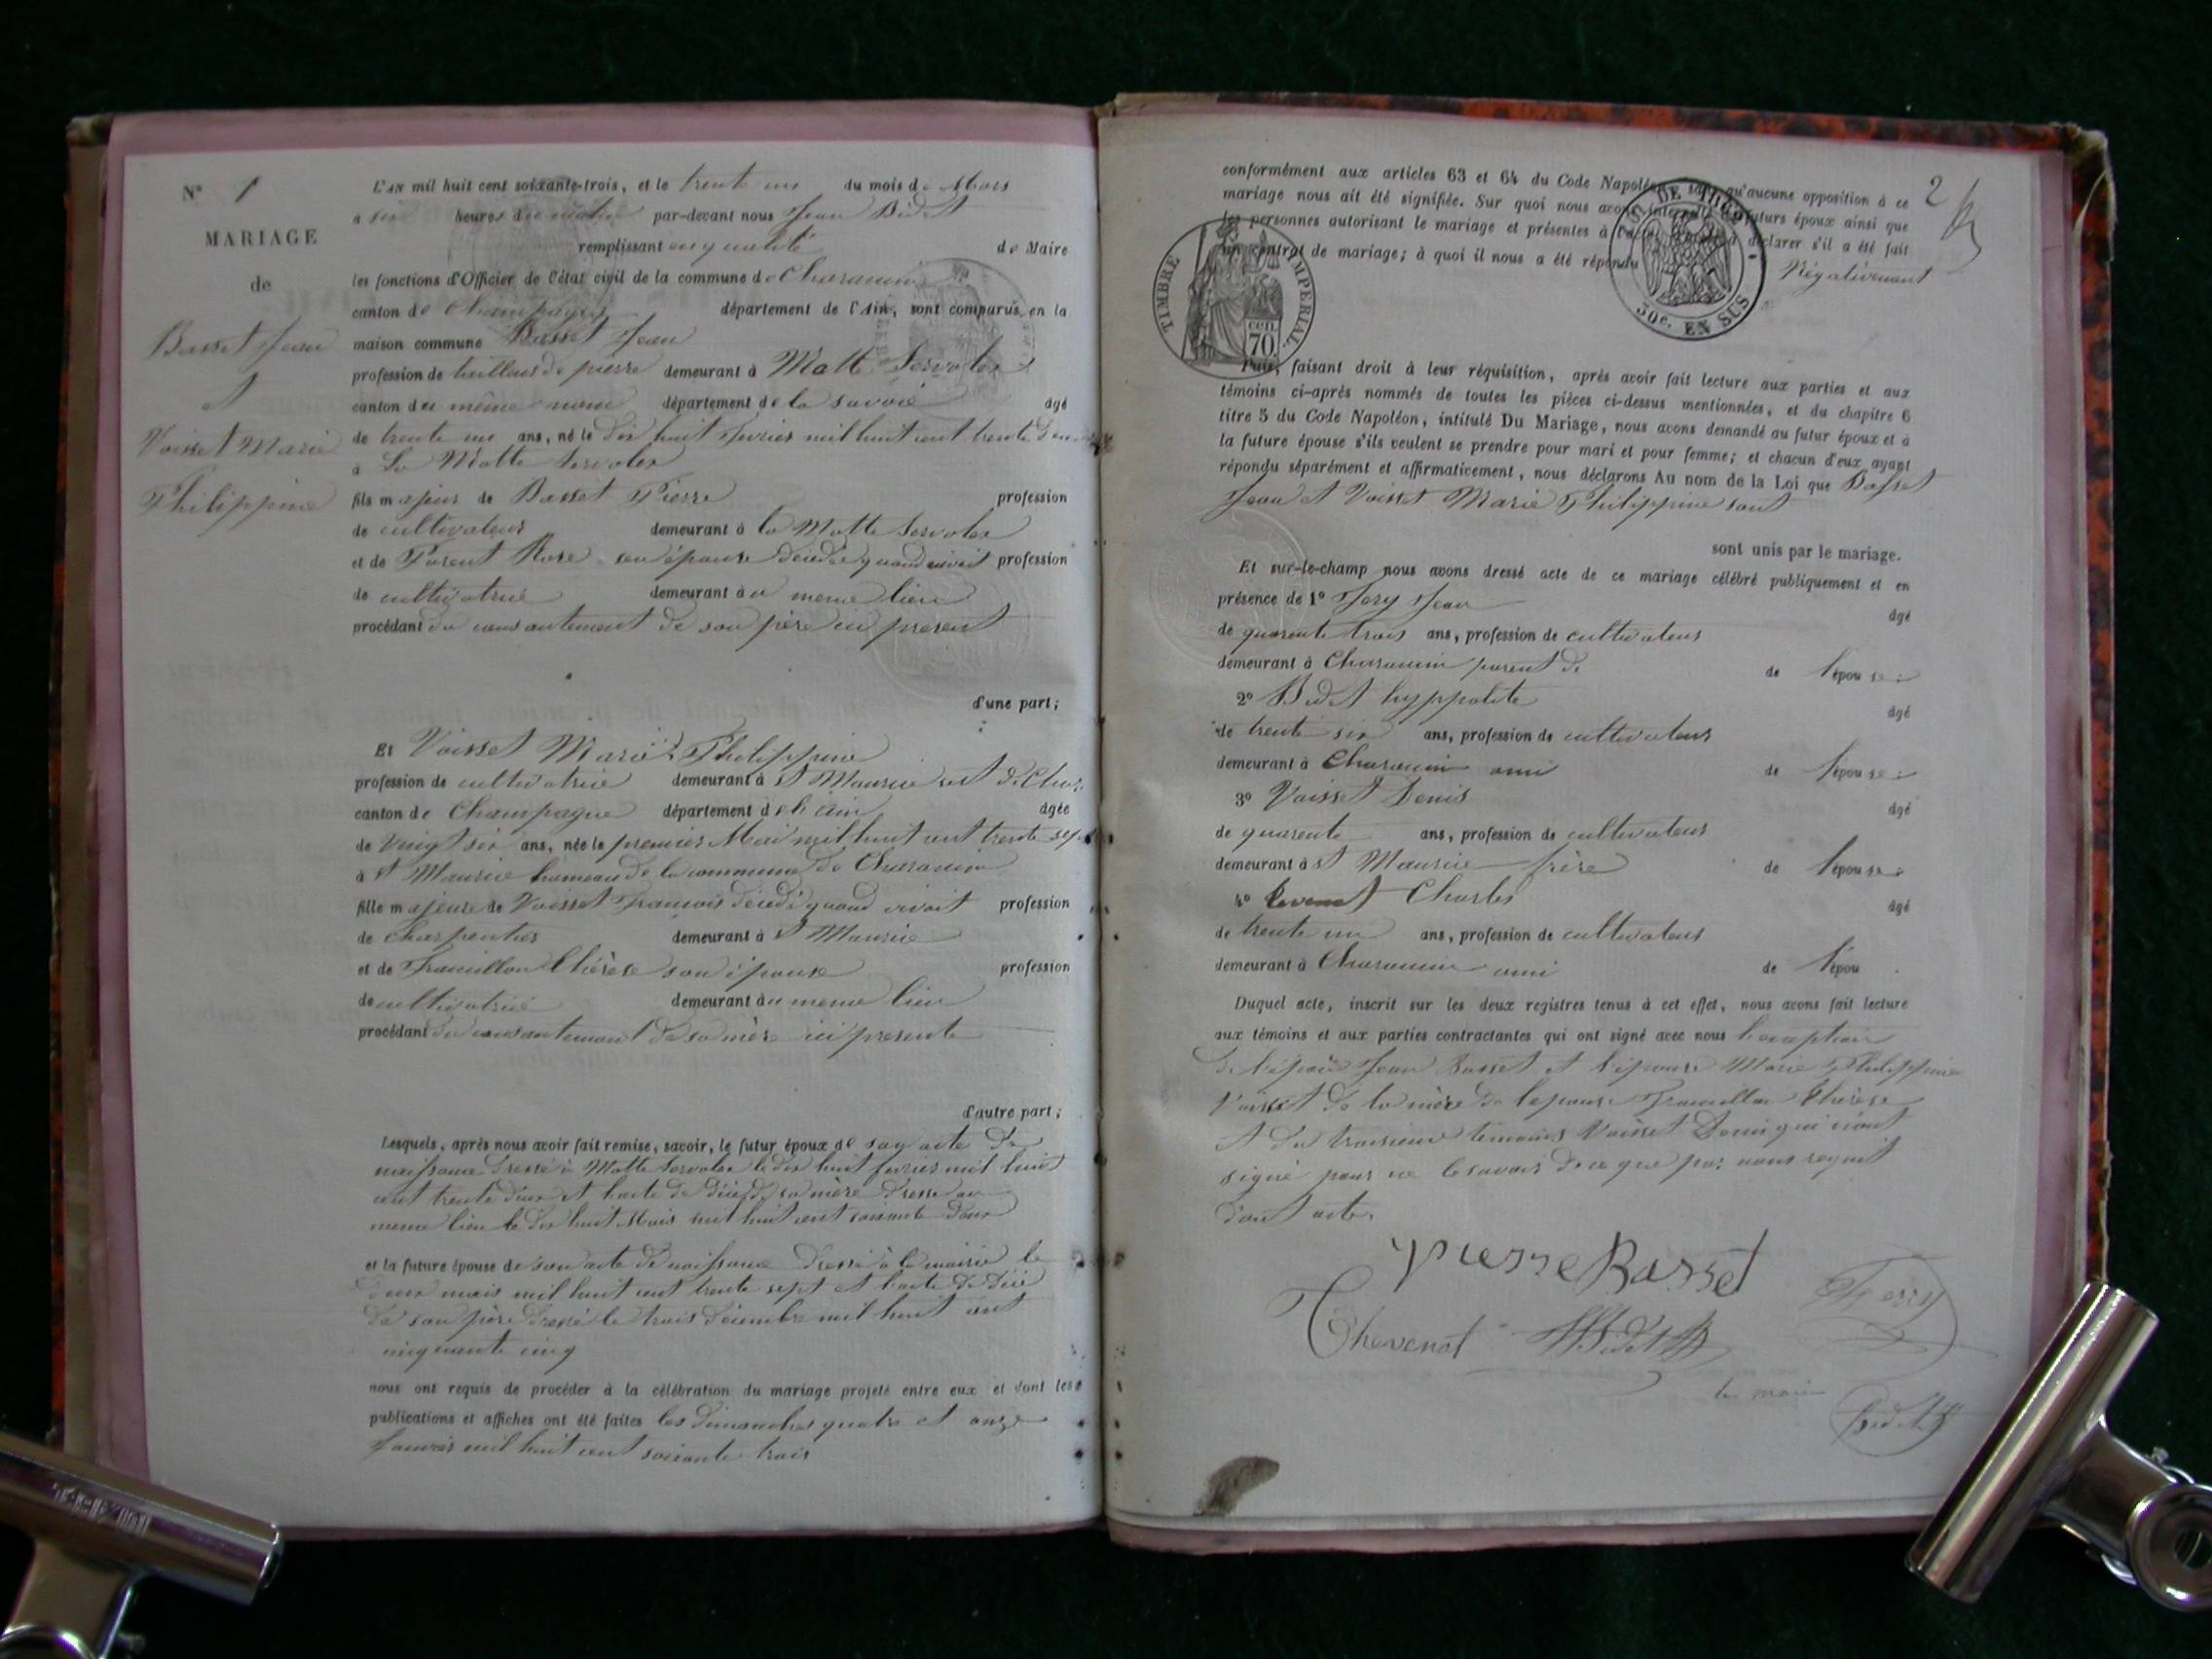 N° 1
MARIAGE
de
Basset Jean
et
Voisset Marie
Philippine
L'AN mil huit cent soixante-trois, et le trente un du mois de Mars
a six heures du matin par-devant nous Jean Bidet
remplissant en qualité de Maire
les fonctions d'Officier de l'état civil de la commune de Charancin
canton de Champagne département de l'Ain, sont comparus en la
maison commune Basset Jean
profession de tailleur de pierre demeurant à Motte Servolex
canton du même nom département de la Savoie âgé
de trente un ans, né le dix huit fevrier mil huit cent trente deux
a La Motte Servolex
fils majeur de Basset Pierre profession
de cultivateur demeurant à la Motte Servolex
et de Parent Rose son épouse décédée quand vivait profession
de cultivatrice demeurant au meme lieu
procédant du consantement de son père ici present
d'une part;
Et Voisset Marie Philippine
profession de cultivatrice demeurant à St Maurice
canton de Champagne département de l'ain âgée
de vingt six ans, née le premier Mai mil huit cent trente sept
à St Maurice hameau de la commune de Charancin
fille majeure de Voisset Francois décédé quand vivait profession
de charpentier demeurant à St Maurice
et de Thérèse son épouse profession
de cultivatrice demeurant au meme lieu
procédant du consantement de sa mère ici presente
d'autre part;
Lesquels, après nous avoir fait remise, savoir, le futur époux de son acte de
naissance dressé à Motte Servolex le dix huit fevrier mil huit
cent trente deux et l'acte de décé de sa mère dressé au
meme lieu le dix huit Mars mil huit cent soixante deux
et la future épouse de son acte de naissance dressé à la mairie le
deux mil huit cent trente sept et l'acte de décé
de son père dressé le trois décembre mil huit cent
cinquante cinq
nous ont requis de procéder à la célébration du mariage projeté entre eux et dont les
publications et affiches ont été faites les dimanches quatre et onze
Janvier mil huit cent soixante trois
2
conformément aux articles 63 et 64 du Code Napoléon, sans qu'aucune opposition à ce
mariage nous ait été signifiée. Sur quoi nous avons interpellé les futurs époux ainsi que
les personnes autorisant le mariage et présentes à l'acte, déclarer s'il a été fait
un contrat de mariage; à quoi il nous a été répondu
Négativement
TIMBRE IMPERIAL
70 cen.
DE TRES
50c. EN SUS
Puis, faisant droit à leur réquisition, après avoir fait lecture aux parties et aux
témoins ci-après nommés de toutes les pièces ci-dessus mentionnées, et du chapitre 6
titre 5 du Code Napoléon, intitulé Du Mariage, nous avons demandé au futur époux et à
la future épouse s'ils veulent se prendre pour mari et pour femme; et chacun d'eux ayant
répondu séparément et affirmativement, nous déclarons Au nom de la Loi que Basset
Jean et Voisset Marie Philippine sont
sont unis par le mariage.
Et sur-le-champ nous avons dressé acte de ce mariage célébré publiquement et en
présence de 1° Jean âgé
de quarente trois ans, profession de cultivateur
demeurant à Charancin parent de de l'épouse
2° Bidet hyppolite âgé
de trente six ans, profession de cultivateur
demeurant à Charancin ami de l'épouse
3° Voisset Denis âgé
de quarente ans, profession de cultivateur
demeurant à St Maurice frère de l'épouse
4° Charles âgé
de trente un ans, profession de cultivateur
demeurant à Charancin ami de l'épou
Duquel acte, inscrit sur les deux registres tenus à cet effet, nous avons fait lecture
aux témoins et aux parties contractantes qui ont signé avec nous l'exception
de l'épou Jean Basset et l'épouse Marie Philippine
Voisset de la mère de l'epouse Thérèse
et du troisieme temoins Voisset Denis qui n'ont
signé pour ne le savoir de ce que par nous requit
dont acte.
pierre Basset
Thevenot
le maire
Bidet